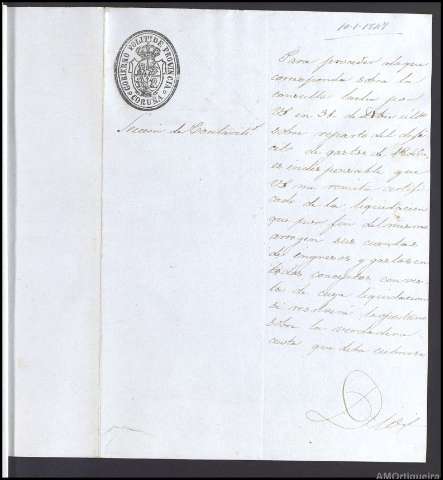 10-1-1847
GOBIERNO POLIT.º DE PROVINCIA
CORUÑA
Seccion de Contabilid.ᵈ
Para proceder a lo que
corresponda sobre la
consulta hecha por
V.S. en 31 de Dbre ult.º
sobre reparto del defi
cit de gastos de
es indispensable que
V.S. me remita certifi
cado de la liquidacion
que por fin del mismo
arrojen sus cuentas
de ingresos y gastos en
todos conceptos con vis
ta de cuya liquidacion
se resolverá lo oportuno
sobre la verdadera
cuota que deba cubrirse
AMOrtigueira